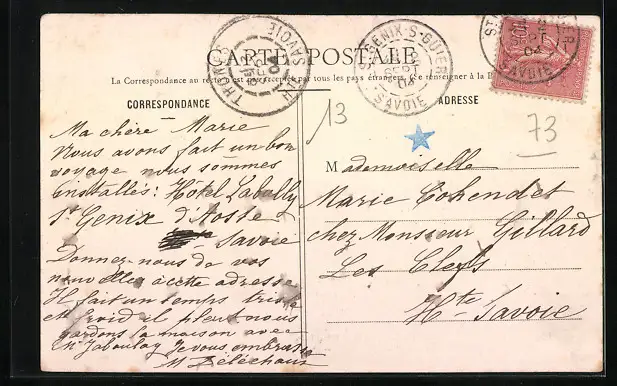 CARTE POSTALE
La Correspondance au recto n'est pas acceptée par tous les pays étrangers. (Se renseigner à la
CORRESPONDANCE
ADRESSE
13
73
Ma chère Marie
Nous avons fait un bon
voyage nous sommes
installés: Hôtel Labully
St Genix d'Aoste
Savoie
Donnez-nous de vos
nouvelles à cette adresse
Il fait un temps triste
et froid il pleut nous
gardons la maison avec
Mr Jaboulay Je vous embrasse
Mademoiselle
Marie Cohendet
chez Monsieur Gillard
Les Clefs
Hte Savoie
THONES
HTE SAVOIE
ST-GENIX-S-GUIERS
SEPT
04
SAVOIE
ST
GUIERS
04
SAVOIE
10